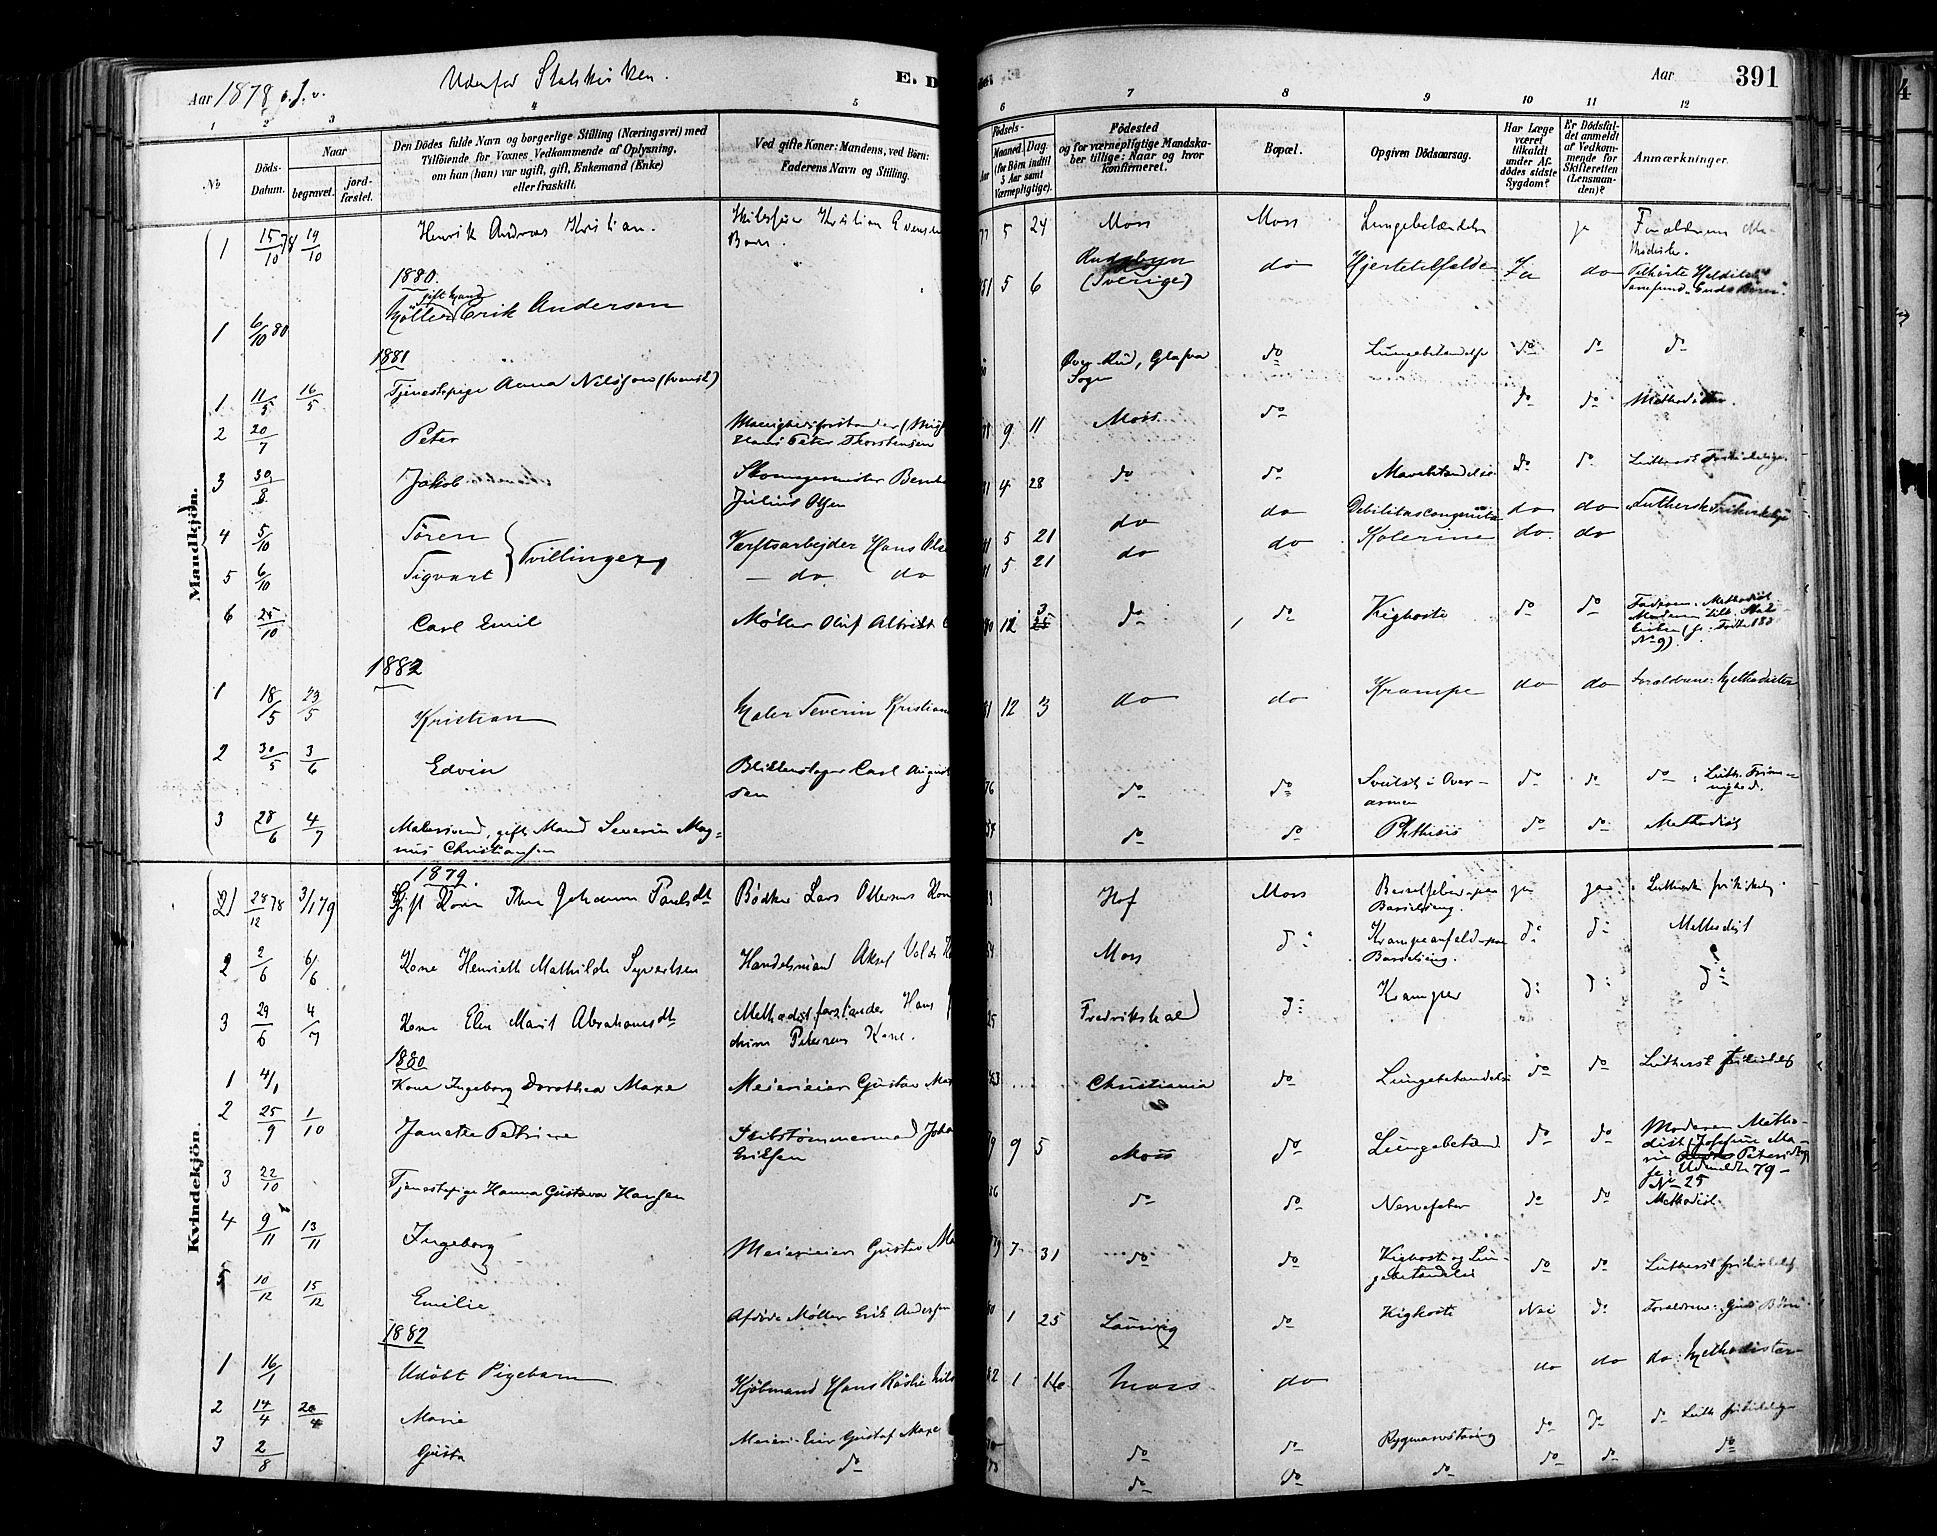 Aar 1878 o. f. v.
Udenfor Statskirken.
E. D
Aar
391
1 2 3 4 5 6 7 8 9 10 11 12
No
Döds-Datum.
Naar
begravet.
jord-fæstet.
Den Dödes fulde Navn og borgerlige Stilling (Næringsvei) med
Tilföiende for Voxnes Vedkommende af Oplysning,
om han (hun) var ugift, gift, Enkemand (Enke)
eller fraskilt.
Ved gifte Koner: Mandens, ved Börn:
Faderens Navn og Stilling.
Födsels-
Aar
Maaned.
Dag.
(for Börn indtil
5 Aar samt
Værnepligtige).
Födested
og for værnepligtige Mandska-
ber tillige: Naar og hvor
konfirmeret.
Bopæl.
Opgiven Dödsaarsag.
Har Læge
været
tilkaldt
under Af-
dödes sidste
Sygdom?
Er Dödsfal-
det anmeldt
af Vedkom-
mende for
Skifteretten
(Lensman-
den)?
Anmærkninger.
Mandkjön.
1 15/10 78 19/10 Henrik Andreas Kristian. Kristian Barn. 77 5 24 Moss Moss Lungebetændelse ja Forældrene Me-
thodister.
1880.
1 6/10 80 Möller gift Mand Erik Anderson 51 5 6 (Sverige) do Hjertetilfælde Ja do Tilhörte
Samfund "Guds Börn".
1881
1 11/5 16/5 Tjenestepige Anna Nilsson (svensk) Rud, Glafva
Sogn do Lungebetændelse do do do
2 20/7 Peter Menighedsforstander
Hans Peter Thorstensen 9 11 Moss do do do Methodister.
3 30/8 Jakob Skomagermester
Julius Olsen 81 4 28 do do Mavebetændelse do do Luthersk Frikirkelige
4 5/10 Sören } Tvillinger Værftsarbejder Hans Olse 81 5 21 do do Debilitas congenita do do Luthersk Frikirkelige
5 6/10 Sigvart — do do 81 5 21 do do Kolerine do do
6 25/10 Carl Emil Møller Oluf Albrikt 80 12 3 do do Kighoste do do Faderen: Methodist
Moderen tilh. Stats-
kirken
No 9).
1882
1 18/5 23/5 Kristian Maler Severin Kristians 81 12 3 do do Krampe do do Forældrene: Methodister
2 30/5 3/6 Edvin Blikkenslager Carl August
sen 76 do do Svulst i Over-
armen do do do Luth. Frime-
nighed.
3 28/6 4/7 Malersvend, gift Mand Severin Mag-
nus Christiansen do do Phthisis do do Methodist
Kvindekjön.
1879.
28/12 78 3/1 79 Gift Kone Johanne Paulsdt Bødker Lars Ottersens Kone Hof Moss Barselfeber paa
Barselseng. ja ja Luthersk frikirkelig
2 2/6 6/6 Kone Henriette Mathilde Syvertsen Handelsmand Aksel Volds K Moss do Krampeanfald paa
Barselseng. do do Methodist
3 29/6 4/7 Kone Elen Marit Abrahamsdt Methodistforstander Hans
Petersens Kone. 25 Fredrikshald do Kramper do do do
1880
1 4/1 Kone Ingeborg Dorothea Maxe Meierieier Gustav Max Christiania do Lungebetændelse do do Luthersk frikirkelig
2 25/9 1/10 Janette Petrine Skibstømmermand Joha
Eriksen 79 9 5 Moss do Lungebetænd do do Moderen Metho-
dist (Josefine Ma-
rie Petersdtr
Udmeldt 79 –
No 25
3 22/10 Tjenestepige Hanna Gustava Hansen 36 do do Nervefeber do do Methodist
4 9/11 13/11 Ingeborg Meierieier Gustav Ma 79 7 31 do do Kighoste og Lun-
gebetændelse do do Luthersk frikirkelig
5 10/12 15/12 Emilie Afdøde Møller Erik Andersen 80 1 25 Laurvig do Kighoste Nei do Forældrene: Guds Börn
1882
1 16/1 Udöbt Pigebarn Kjöbmand Hans 82 1 16 Moss do do do do: Methodister
2 14/4 20/4 Marie Meieri-Eier Gustaf Maxe do do Rygmarvstæring do do do Luth frikirkelige
3 2/8 Gusta do do do do do do do